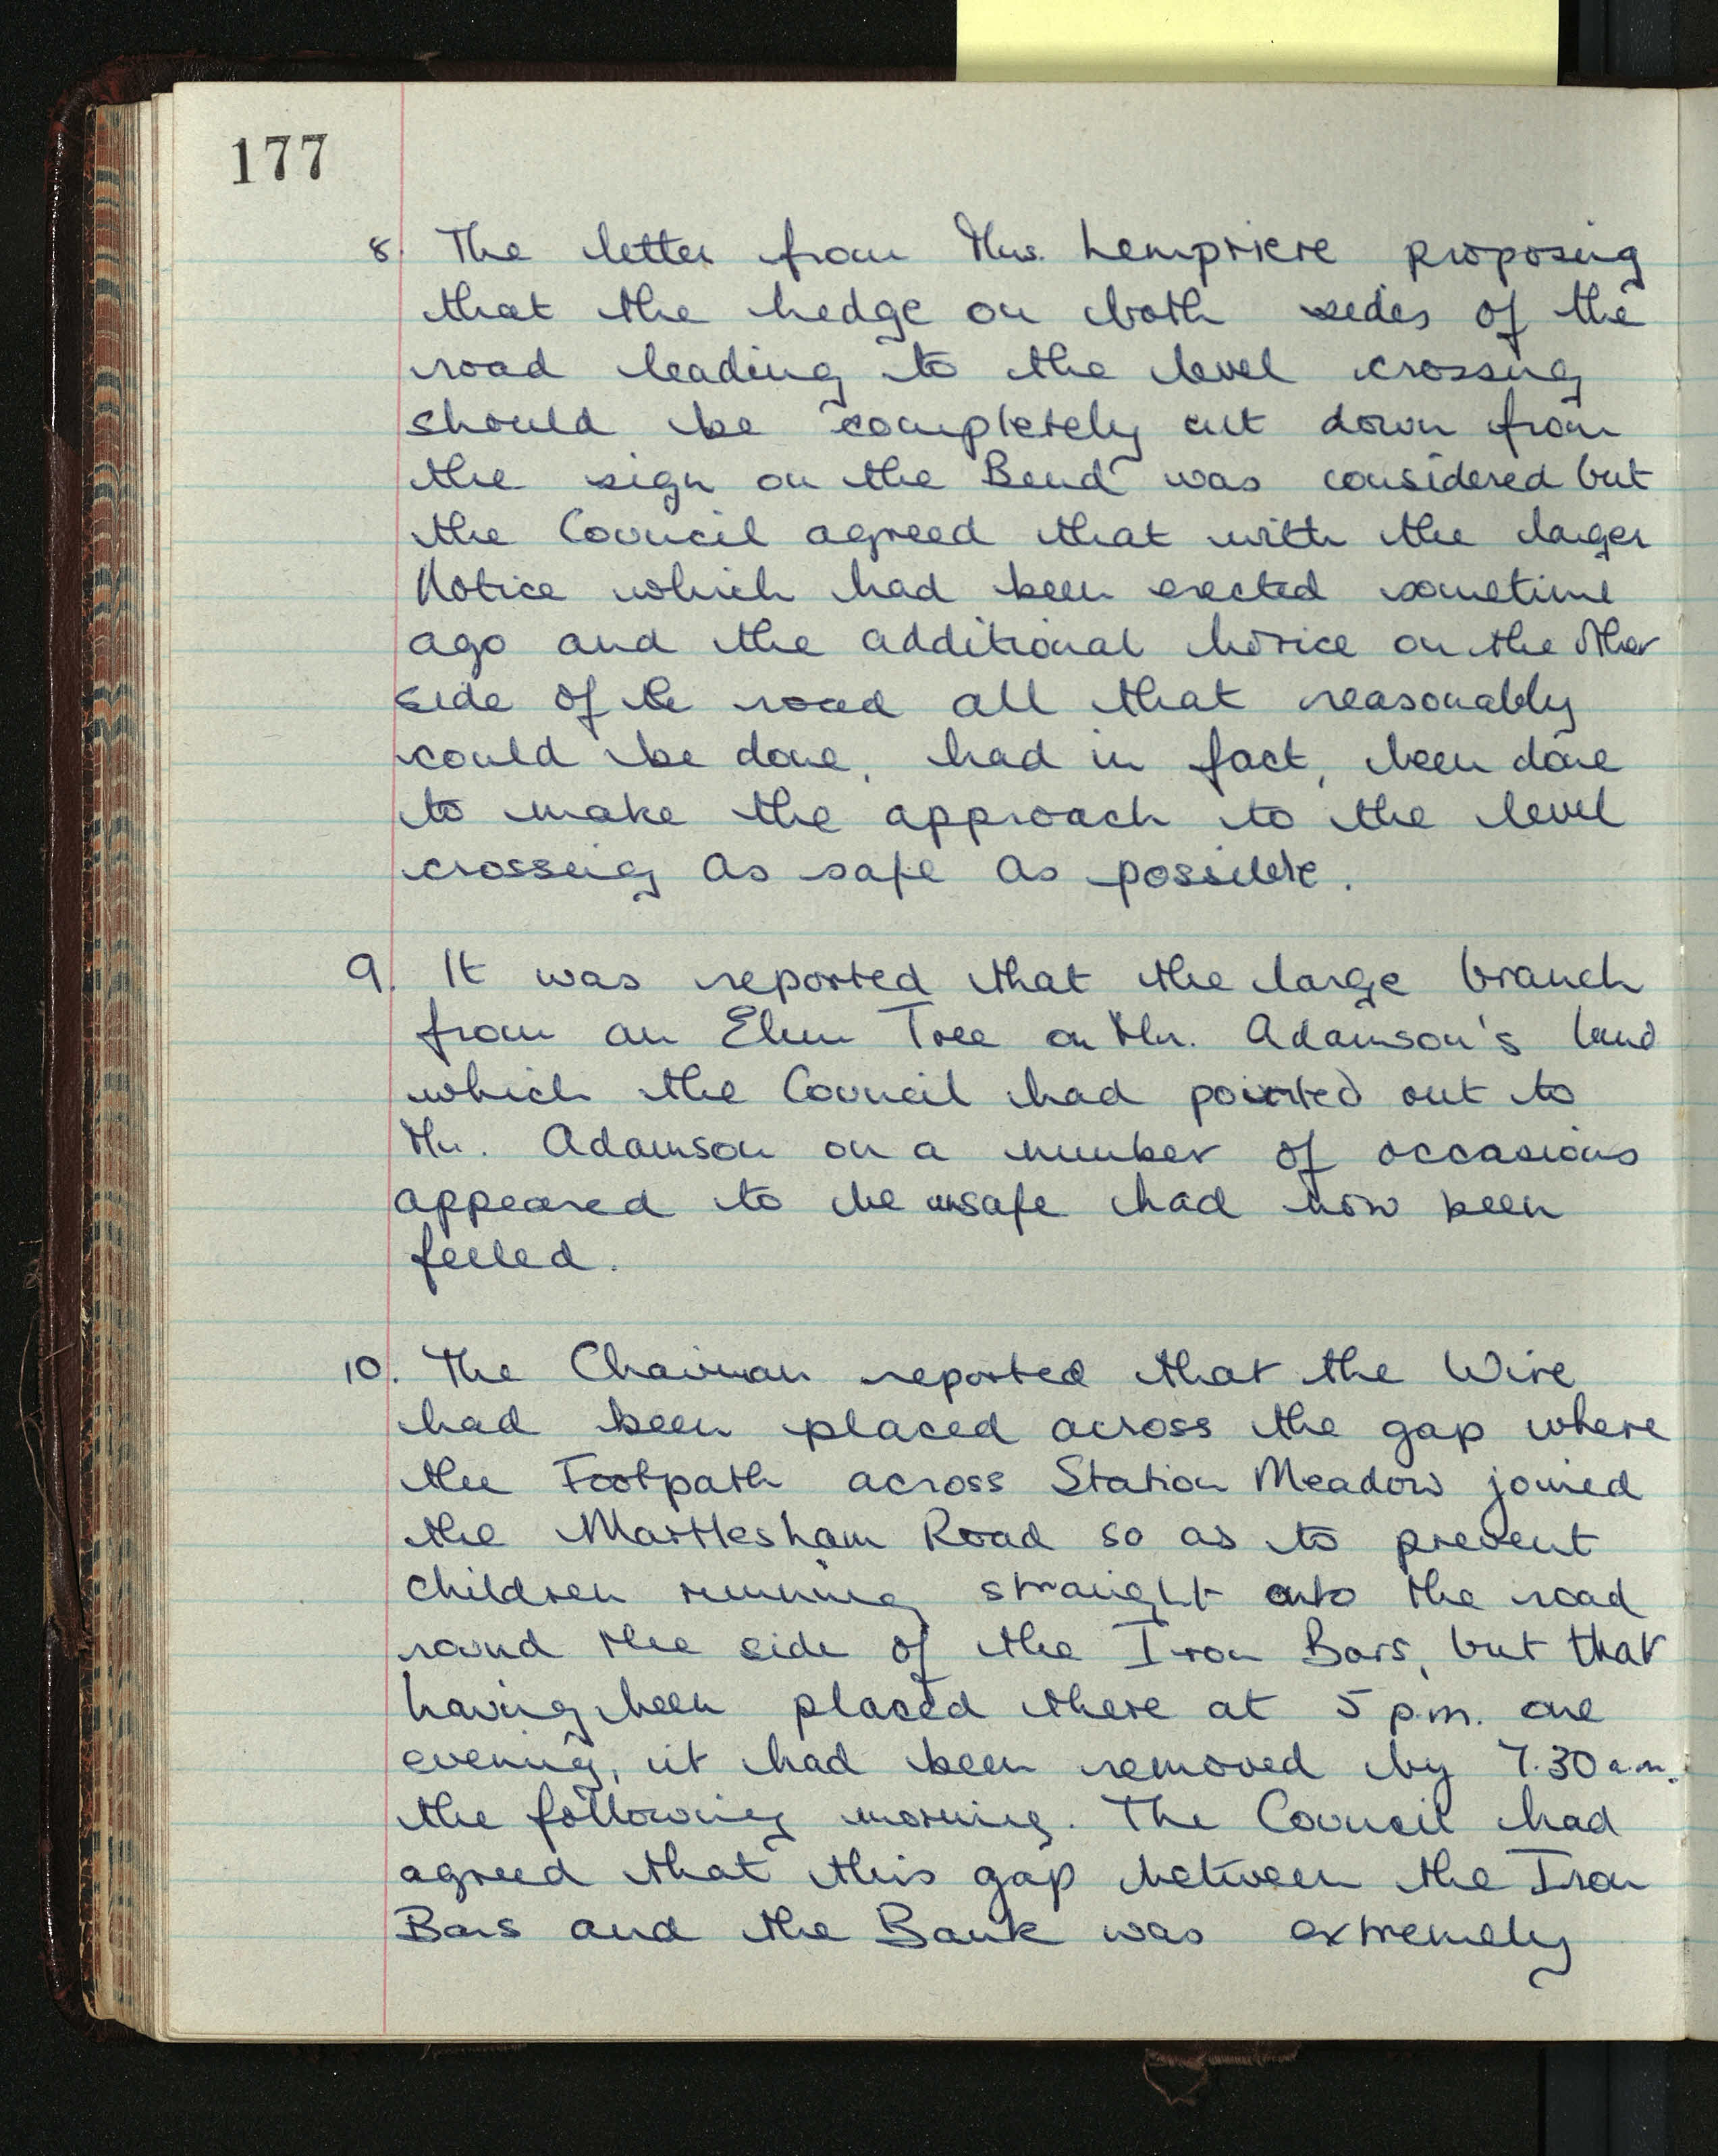 177
8. The letter from Mrs. Lempriere proposing
that the hedge on both sides of the
road leading to the level crossing
should be completely cut down from
the sign on the Bend was considered but
the Council agreed that with the larger
Notice which had been erected sometime
ago and the additional notice on the other
side of the road all that reasonably
could be done, had in fact, been done
to make the approach to the level
crossing as safe as possible.
9. It was reported that the large branch
from an Elm Tree on Mr. Adamson's land
which the Council had pointed out to
Mr. Adamson on a number of occasions
appeared to be unsafe had now been
felled.
10. The Chairman reported that the Wire
had been placed across the gap where
the Footpath across Station Meadow joined
the Martlesham Road so as to prevent
children running straight onto the road
round the side of the Iron Bars, but that
having been placed there at 5 p.m. one
evening, it had been removed by 7.30 a.m.
the following morning. The Council had
agreed that this gap between the Iron
Bars and the Bank was extremely